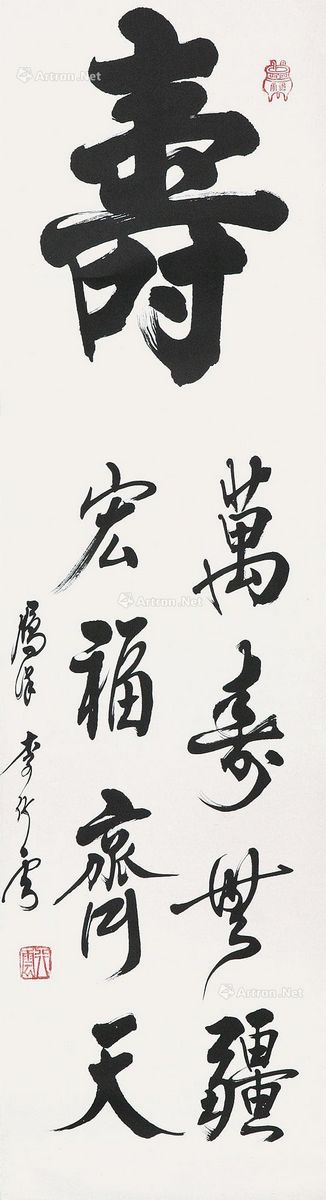 壽
萬壽無疆
宏福齊天
李行雲
Artron.Net
Artron.Net
Artron.Net